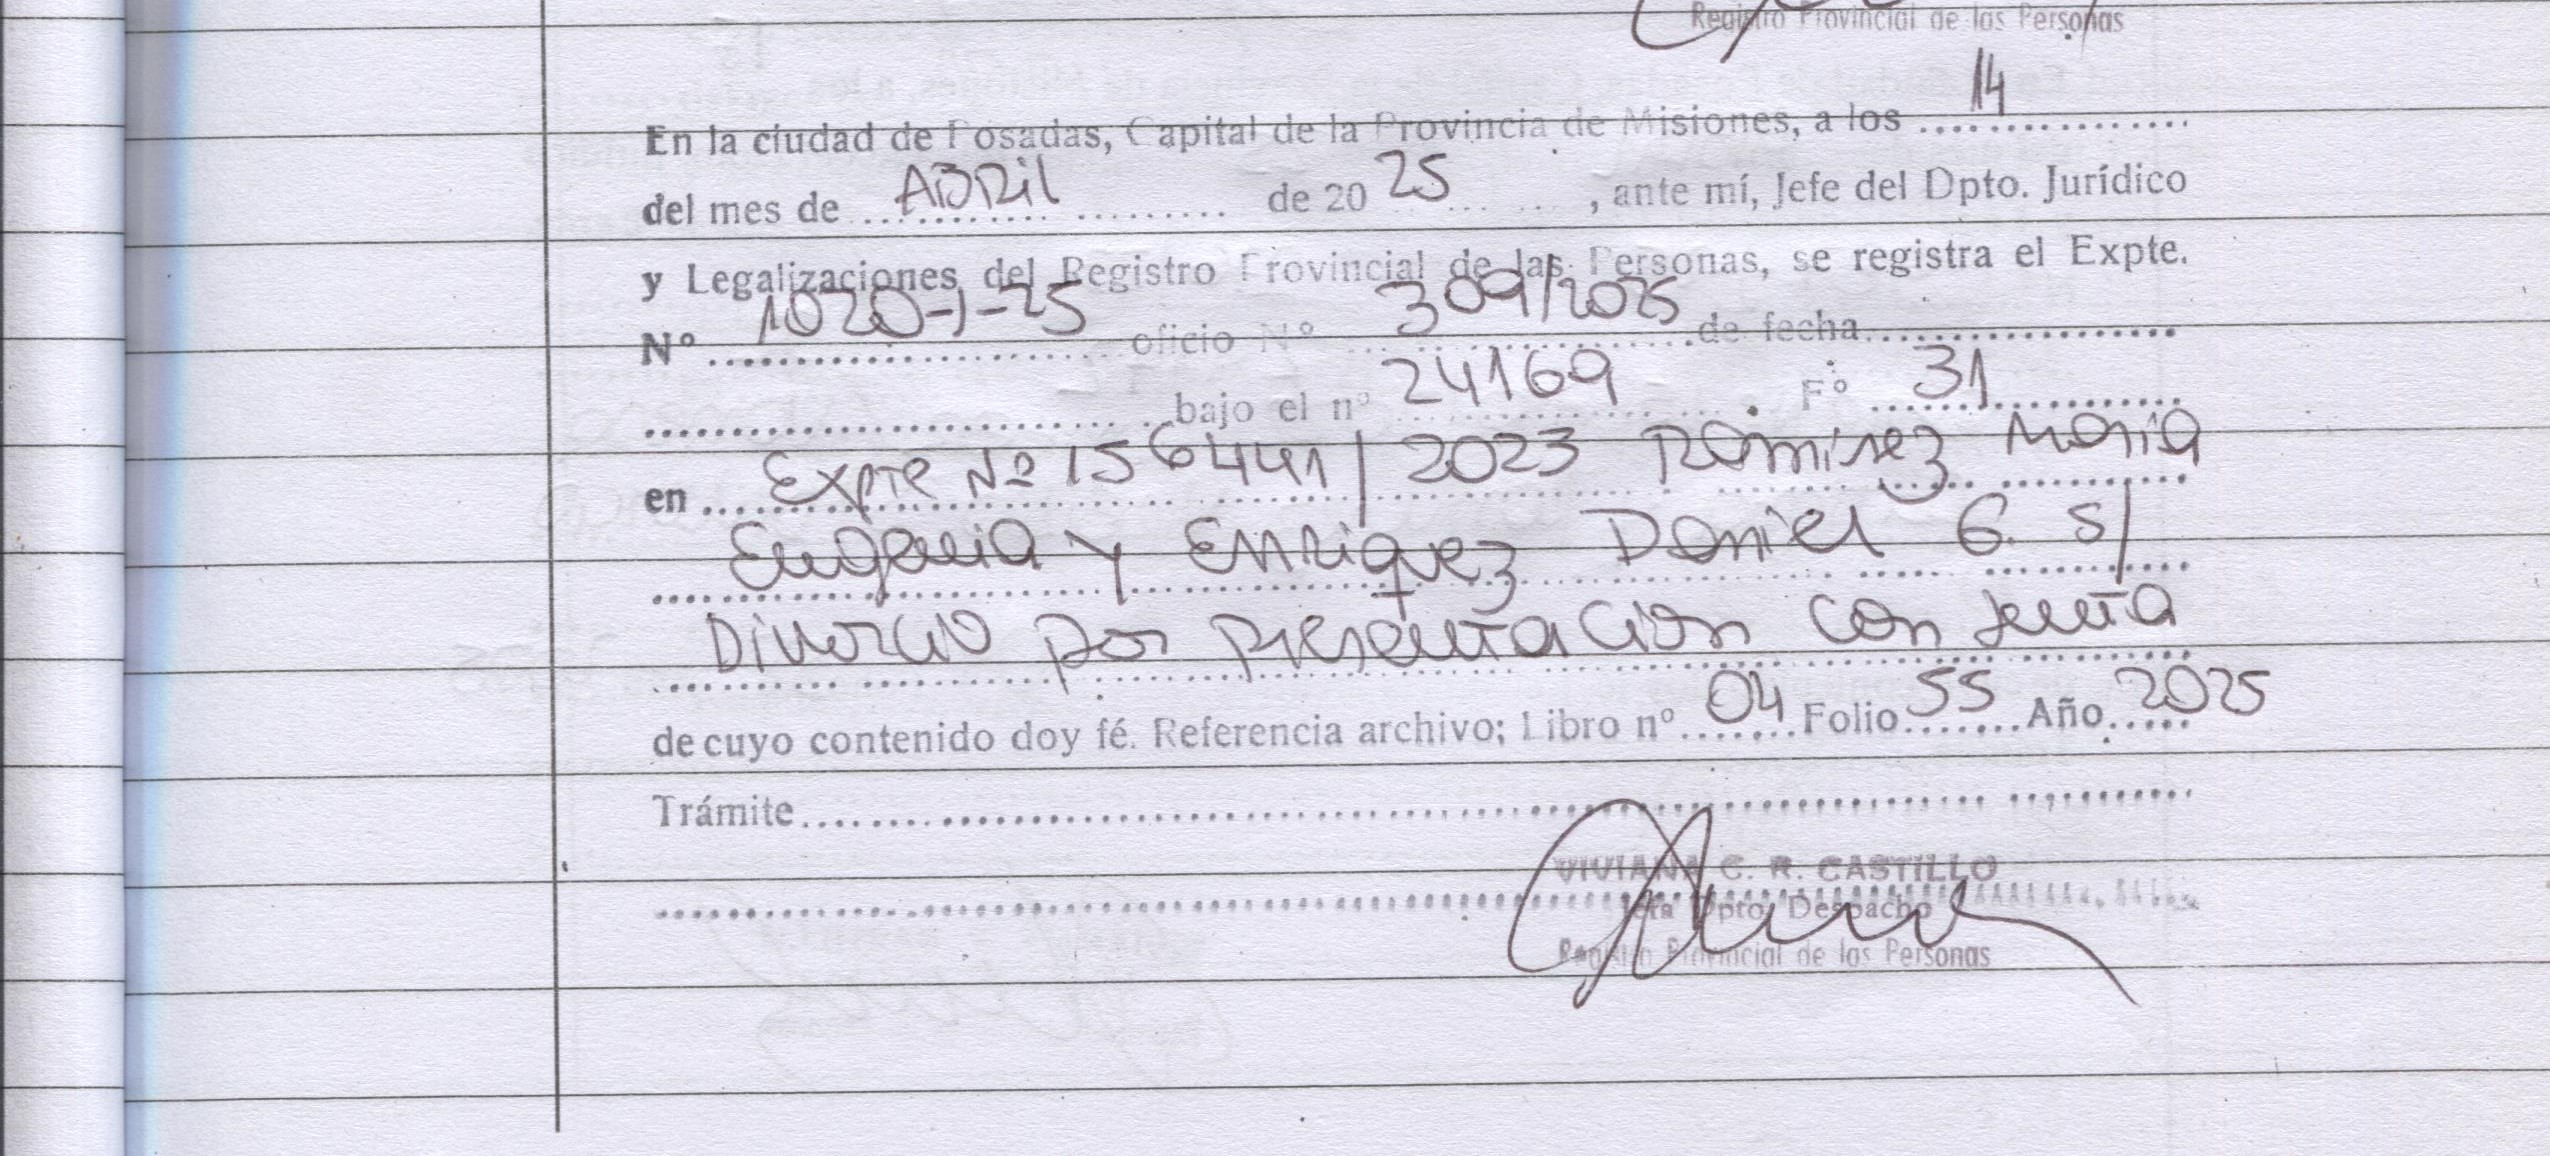 Registro Provincial de las Personas
En la ciudad de Posadas, Capital de la Provincia de Misiones, a los 14
del mes de ABRil de 20 25, ante mí, Jefe del Dpto. Jurídico
y Legalizaciones del Registro Provincial de las Personas, se registra el Expte.
Nº 1020-J-25 oficio Nº 309/2025 de fecha
bajo el nº 24169 Fº 31
en Expte Nº 156441/2023 Ramirez Maria
Eugenia y Enriquez Daniel G. s/
Divorcio por presentacion conjunta
de cuyo contenido doy fé. Referencia archivo; Libro nº 04 Folio 55 Año 2025
Trámite
VIVIANA C. R. CASTILLO
Jefa Dpto. Despacho
Registro Provincial de las Personas